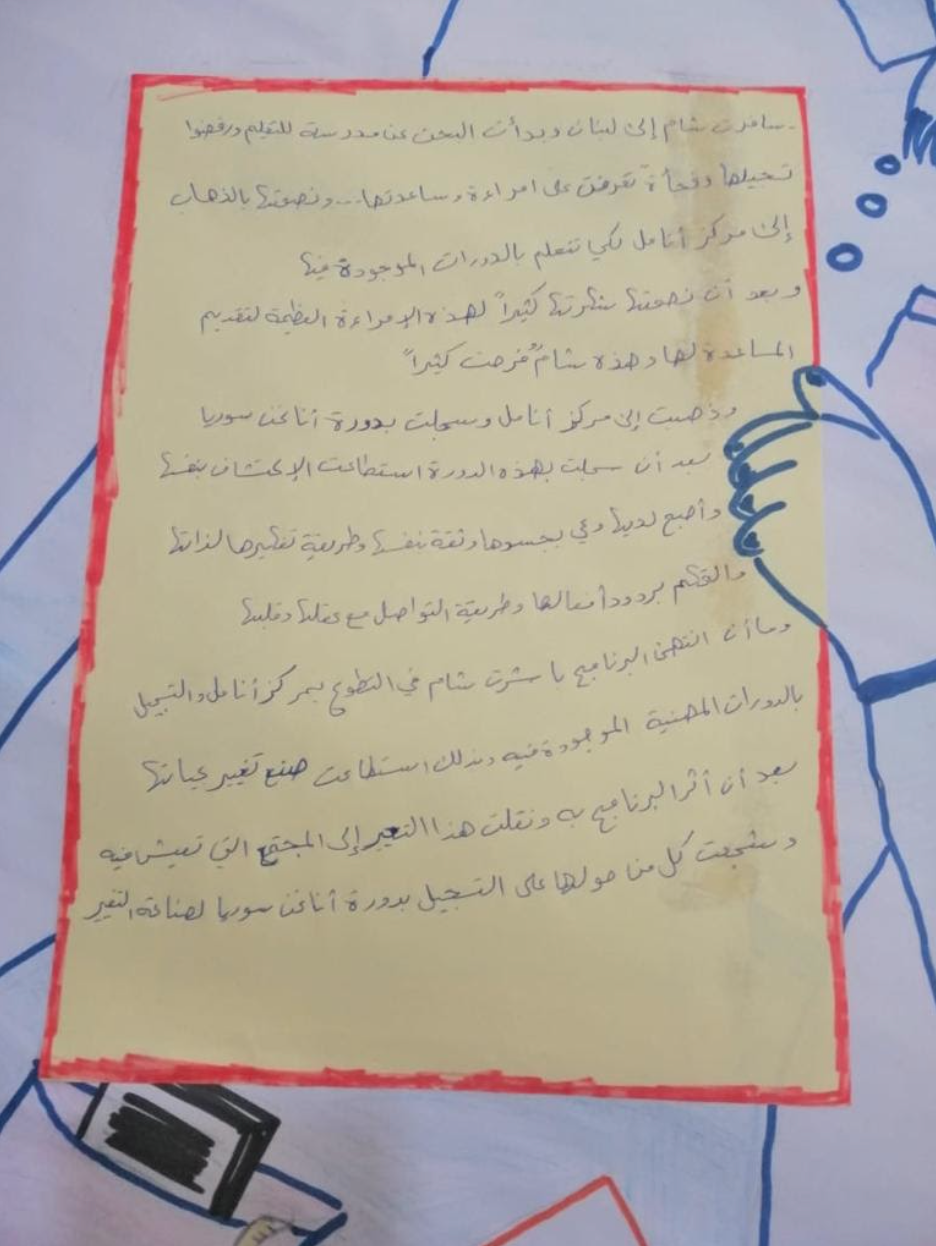 سافرت شام إلى لبنان وبدأت البحث عن مدرسة للتعليم ورفضوا
تسجيلها وفجأة تعرفت على امراءة وساعدتها... ونصحتها بالذهاب
إلى مركز أنامل لكي تتعلم بالدورات الموجودة فيها
و بعد أن نصحتها شكرتها كثيراً لهذه الإمراءة العظيمة لتقديم
المساعدة لها وهذه شام فرحت كثيراً
وذهبت إلى مركز أنامل وسجلت بدورة أنا نحن سوريا
بعد أن سجلت بهذه الدورة استطاعت الإكتشاف بنفسها
وأصبح لديها وعي بجسمها وثقة بنفسها وطريقة تفكيرها لذاتها
والتحكم بردود أفعالها وطريقة التواصل مع عقلها وقلبها
وما أن انتهى البرنامج باشرت شام في التطوع بمركز أنامل والتسجيل
بالدورات المهنية الموجودة فيه وبذلك استطاعت صنع تغيير بحياتها
بعد أن أثر البرنامج به ونقلت هذا التغيير إلى المجتمع التي تعيش فيه
وشجعت كل من حولها على التسجيل بدورة أنا نحن سوريا لصناعة التغير